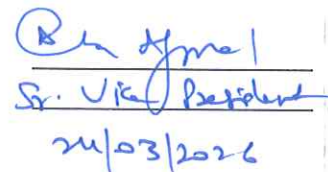 Sr. Vice President
24/03/2026